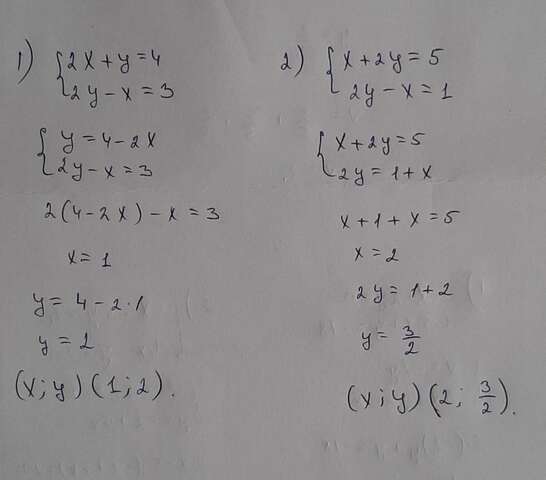 1) { 2x + y = 4
2y - x = 3
{ y = 4 - 2x
2y - x = 3
2(4 - 2x) - x = 3
x = 1
y = 4 - 2·1
y = 2
(x; y) (1; 2).
2) { x + 2y = 5
2y - x = 1
{ x + 2y = 5
2y = 1 + x
x + 1 + x = 5
x = 2
2y = 1 + 2
y = 3/2
(x; y) (2; 3/2).